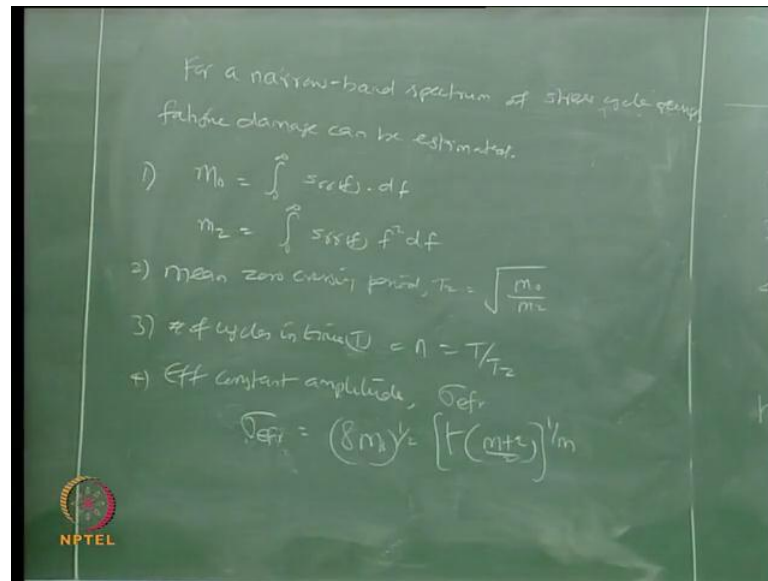 For a narrow-band spectrum of stress cycle
fatigue damage can be estimated.
1) m₀ = ∫₀^∞ Sσσ(f). df
m₂ = ∫₀^∞ Sσσ(f) f² df
2) mean zero crossing period, Tz = √(m₀/m₂)
3) # of cycles in time (T) = n = T/Tz
4) Eff constant amplitude, σefr
σefr = (8m₀)^½ [Γ(m+2/2)]^1/m
NPTEL